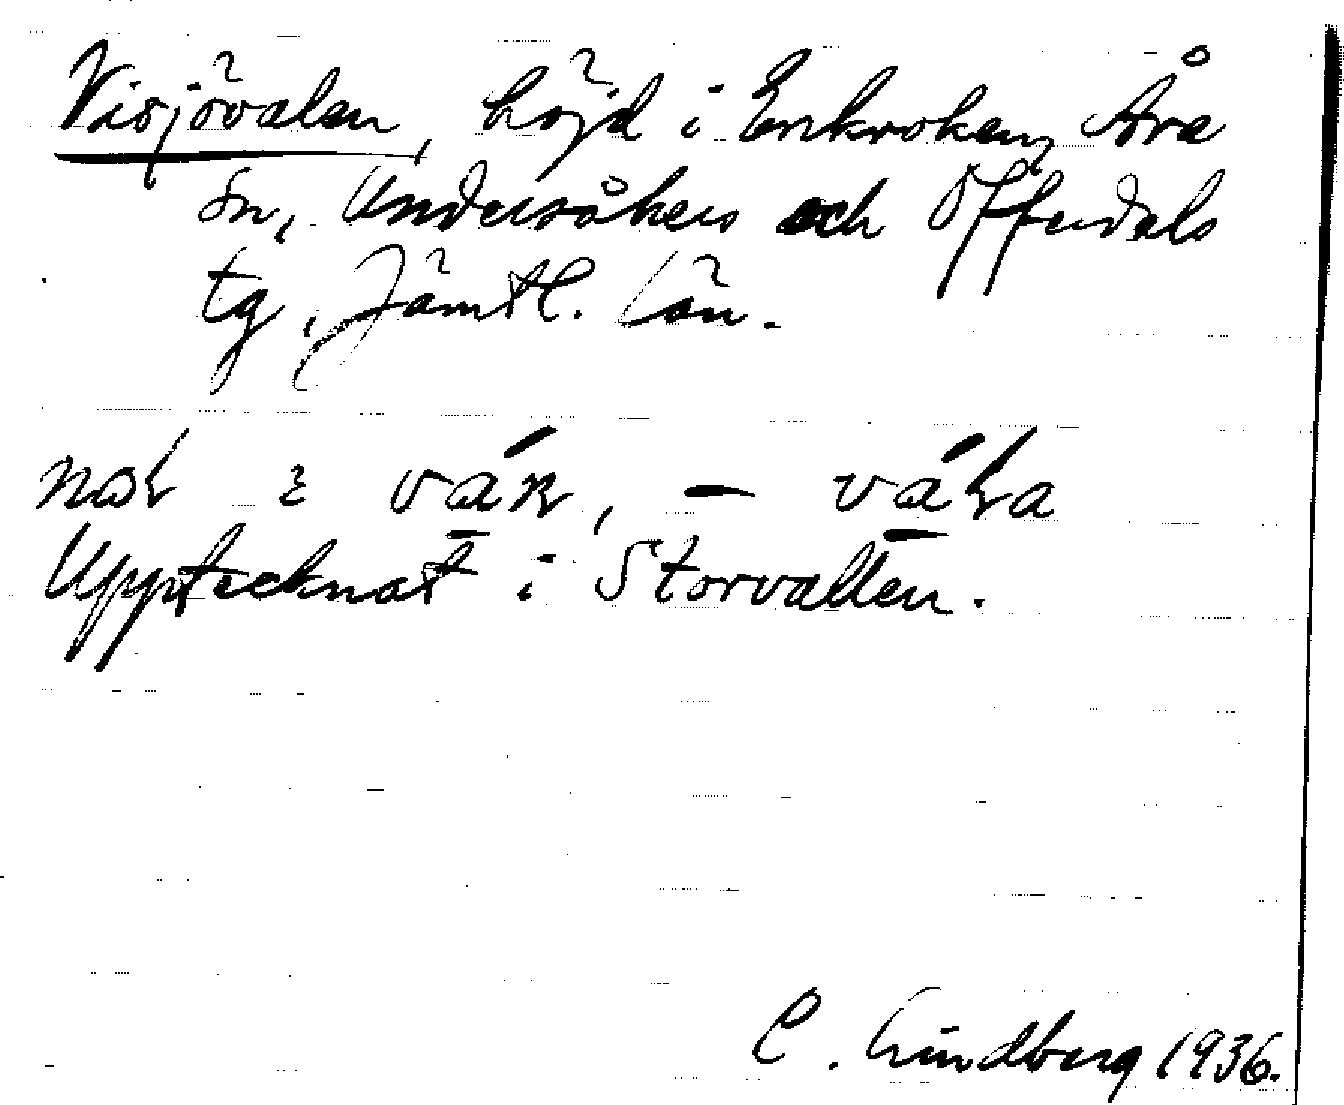 Visjövalen, höjd i Enkroken, Åre
sn, Undersåkers och Offerdals
tg, Jämtl. län.
Upptecknat i Storvallen.
C. Lindberg 1936.